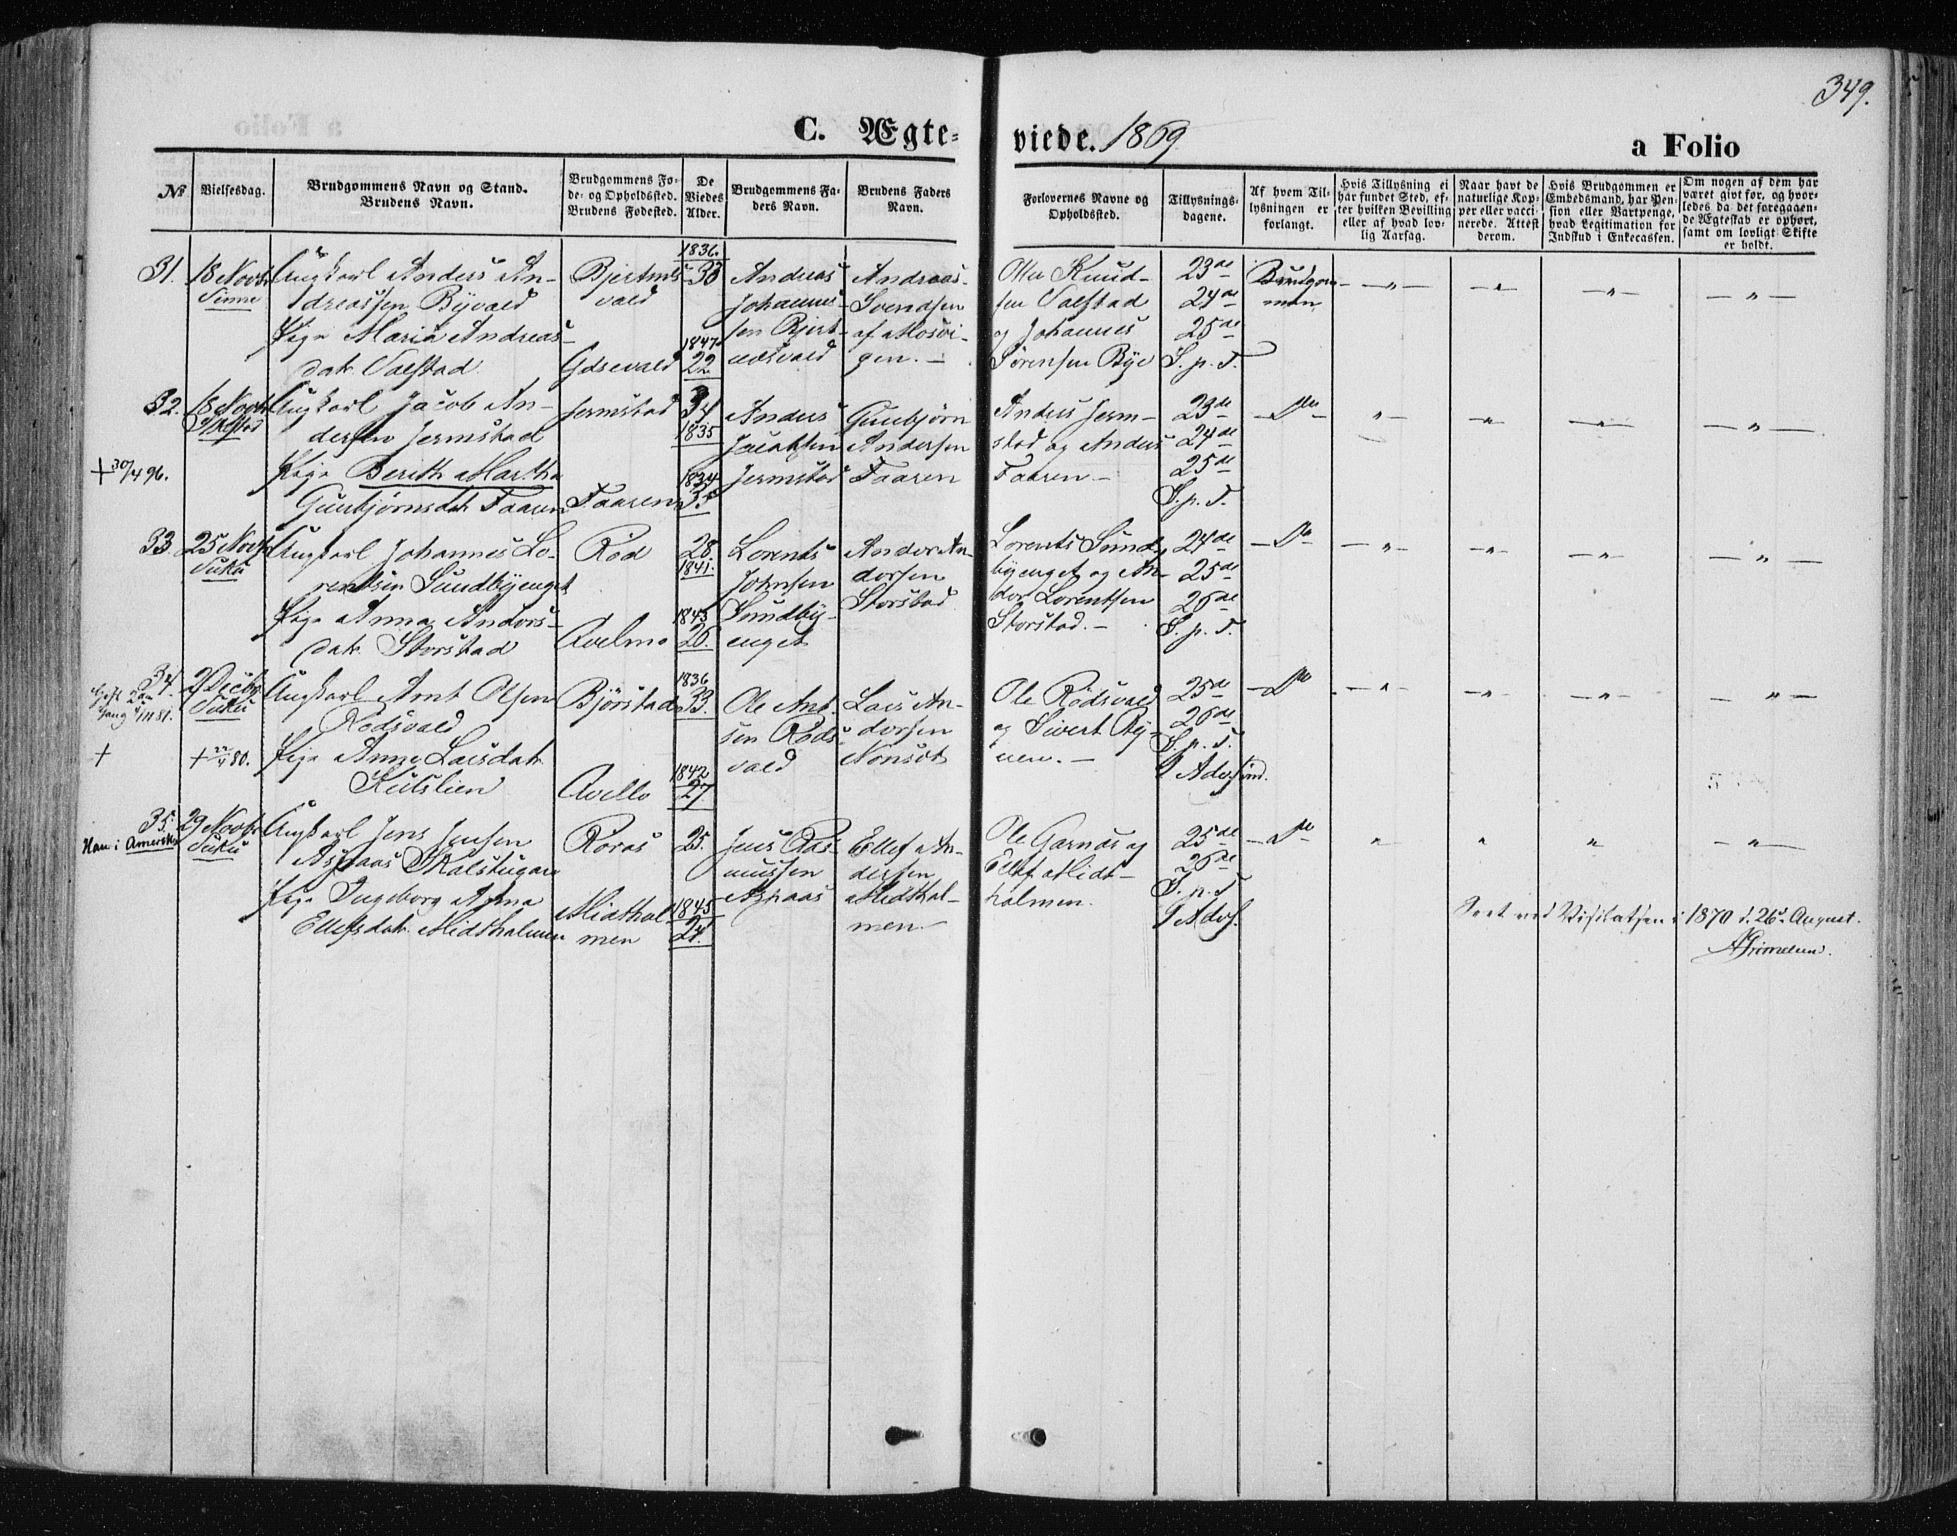 349.
C. Ægte-
viede. 1869
a Folio
No
Vielsesdag.
Brudgommens Navn og Stand.
Brudens Navn.
Brudgommens Fø-
de- og Opholdssted.
Brudens Fødested.
De
Viedes
Alder.
Brudgommens Fa-
ders Navn.
Brudens Faders
Navn.
Forlovernes Navne og
Opholdssted.
Tillysnings-
dagene.
Af hvem Til-
lysningen er
forlangt.
Hvis Tillysning ei
har fundet Sted, ef-
ter hvilken Bevilling
eller af hvad lov-
lig Aarsag.
Naar havt de
naturlige Kop-
per eller vacci-
nerede. Attest
derom.
Hvis Brudgommen er
Embedsmand, har Pen-
sion eller Vartpenge,
hvad Legitimation for
Indskud i Enkecassen.
Om nogen af dem har
været gift før, og hvor-
ledes da det foregaaen-
de Ægteskab er ophørt,
samt om lovligt Skifte
er holdt.
31.
18 Novbr
Vinne
Ungkarl Anders An-
dreassen Byvald
Pige Maria Andreas-
datr Valstad
Bjertnæs-
vald
Gdsevald
1836.
33
1847
22
Andreas
Johannes-
sen Bjert-
næsvald
Andreas
Svendsen
af Mosvi-
gen. -
Otter Knud-
sen Valstad
og Johannes
Sørensen Bye
23de
24de
25de
S. p. T.
Brudgom-
men
32.
18 Novbr
+ 30/4 96.
Ungkarl Jacob An-
dersen Jermstad
Pige Berith Martha
Gunbjørnsdatr Faaren
Jermstad
Faaren
34
1835
1834
35
Anders
Jacobsen
Jermstad
Gunbjørn
Andersen
Faaren
Anders Jerm-
stad og Anders
Faaren. -
23de
24de
25de
S. p. T.
Do
33.
25 Novbr
Stiku
Ungkarl Johannes Lo-
rentsen Sundbyenget
Pige Anna Andors-
datr Storstad
Rød
Avelmo
28.
1841.
1843
26.
Lorents
Johnsen
Sundby-
enget
Andor An-
dorsen
Storstad
Lorents Sund-
byenget og An-
dor Lorentsen
Storstad. -
24de
25de
26de
S. p. T.
Do
34.
2 Decbr
+
+ 22/4 80.
Ungkarl Arnt Olsen
Rødsvald
Pige Anne Larsdatr
Kulslien
Bjørstad
Avello
1836
33.
1842
27
Ole Ant.
sen Røds-
vald
Lars An-
dorsen
Ole Rødsvald
og Sivert By-
nen. -
25de
26de
S. p. T.
1 Advs. Sønd.
Do
35.
29 Novbr
Han i Amerika
Ungkarl Jens Jensen
Aspaas Skalstugan
Pige Ingeborg Anna
Ellefsdatr Midtholmen
Røros
Midthol-
men
25.
1845
24.
Jens Ras-
mussen
Aspaas
Ellef An-
dersen
Midthol-
men. -
Ole Garnæs og
Ellef Midt-
holmen.
25de
26de
S. p. T
1 Advs.
Do
Seet ved Visitatsen i 1870 d. 26. August.
AGrimelund.